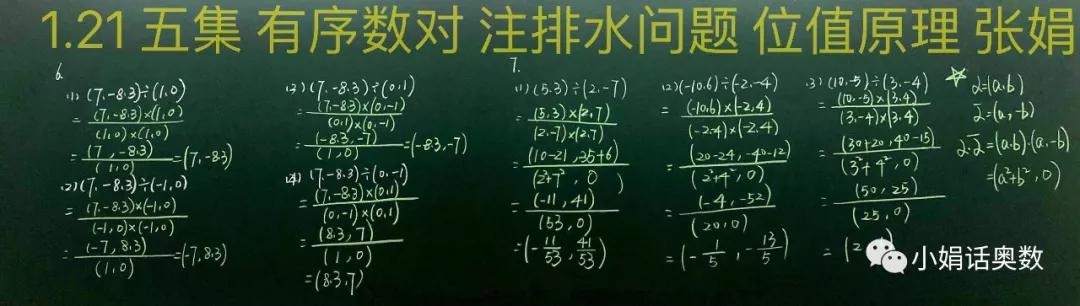 1.21 五集 有序数对 注排水问题 位值原理 张娟
6.
(1) (7,-8.3)÷(1,0)
= (7,-8.3)×(1,0)
(1,0)×(1,0)
= (7,-8.3)
(1,0)
=(7,-8.3)
(2) (7,-8.3)÷(-1,0)
= (7,-8.3)×(-1,0)
(-1,0)×(-1,0)
= (-7,8.3)
(1,0)
=(-7,8.3)
(3) (7,-8.3)÷(0,1)
= (7,-8.3)×(0,-1)
(0,1)×(0,-1)
= (-8.3,-7)
(1,0)
=(-8.3,-7)
(4) (7,-8.3)÷(0,-1)
= (7,-8.3)×(0,1)
(0,-1)×(0,1)
= (8.3,7)
(1,0)
=(8.3,7)
7.
(1) (5.3)÷(2,-7)
= (5.3)×(2,7)
(2,-7)×(2,7)
= (10-21,35+6)
(2²+7²,0)
= (-11,41)
(53,0)
=(-11/53,41/53)
(2) (-10,6)÷(-2,-4)
= (-10,6)×(-2,4)
(-2,-4)×(-2,4)
= (20-24,-40-12)
(2²+4²,0)
= (-4,-52)
(20,0)
=(-1/5,-13/5)
(3) (10,-5)÷(3,-4)
= (10,-5)×(3,4)
(3,-4)×(3,4)
= (30+20,40-15)
(3²+4²,0)
= (50,25)
(25,0)
= (2
☆ α=(a,b)
ᾱ=(a,-b)
α·ᾱ=(a,b)·(a,-b)
=(a²+b²,0)
小娟话奥数